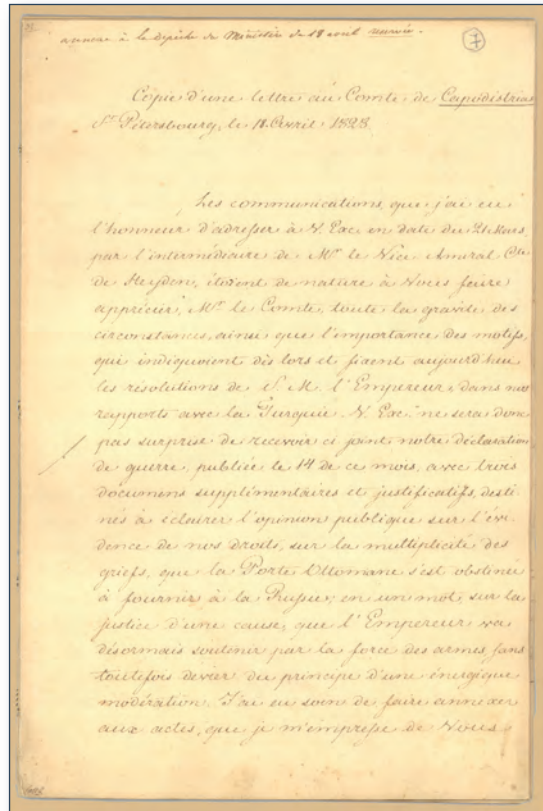 annexe à la dépêche du Ministère du 18 avril réservée.
Copie d'une lettre au Comte de Capodistrias
St Pétersbourg, le 18. Avril 1828
Les communications, que j'ai eu
l'honneur d'adresser à V. Exc. en date du 21. Mars,
par l'intermédiaire de Mr le Vice Amiral Cte
de Heyden, étoient de nature à Vous faire
apprécier, Mr le Comte, toute la gravité des
circonstances, ainsi que l'importance des motifs,
qui indiquoient dès lors et fixent aujourd'hui
les résolutions de S. M. l'Empereur, dans nos
rapports avec la Turquie. V. Exc. ne sera donc
pas surprise de recevoir ci joint notre déclaration
de guerre, publiée le 14 de ce mois, avec trois
documens supplimentaires et justificatifs, desti-
nés à éclairer l'opinion publique sur l'évi-
dence de nos droits, sur la multiplicité des
griefs, que la Porte Ottomane s'est obstinée
à fournir à la Russie; en un mot, sur la
justice d'une cause, que l'Empereur va
désormais soutenir par la force des armes, sans
toutefois dévier du principe d'une énergique
modération. J'ai eu soin de faire annexer
aux actes, que je m'empresse de Vous